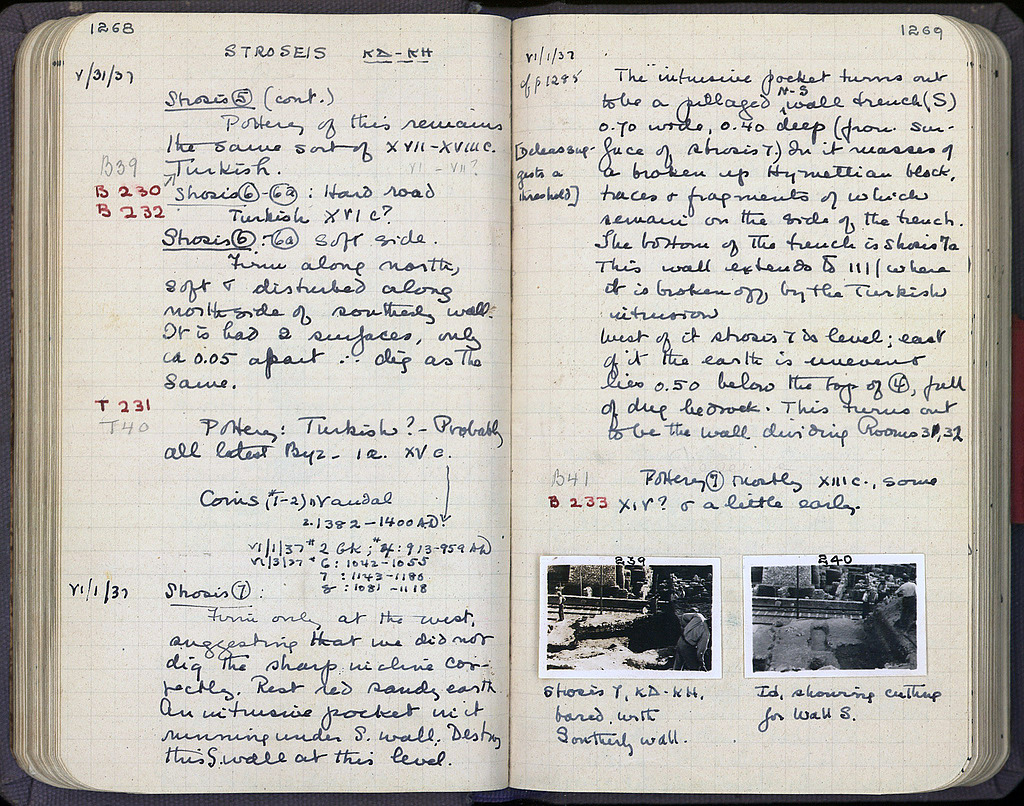 1268
STROSEIS KΔ-KH
V/31/37
Strosis ⑤ (cont.)
Pottery of this remains
the same sort of XVII-XVIII c.
B39 Turkish. VI - VII?
B 230 Strosis ⑥-⑥a : Hard road
B 232 Turkish XVI c?
Strosis ⑥-⑥a soft side.
Firm along north,
soft & disturbed along
north side of southerly wall.
It is had 2 surfaces, only
ca 0.05 apart ∴ dig as the
same.
T 231
T40
Pottery: Turkish? - Probably
all latest Byz - i.e. XV c.
Coins (#1-2) Vandal
2.1382-1400 AD.
VI/1/37 #2 Gk; #4: 913-959 AD
VI/3/37 #6: 1042-1055
7 : 1143-1180
8 : 1081-1118
VI/1/37 Strosis ⑦ :
Firm only at the west,
suggesting that we did not
dig the sharp incline cor-
rectly. Rest red sandy earth
An intrusive pocket in it
running under S. wall. Destroy
this S. wall at this level.
1269
VI/1/37
cf p 1288
The intrusive pocket turns out
to be a pillaged N-S wall trench (S)
0.70 wide, 0.40 deep (from sur-
face of strosis 7.) In it masses of
a broken up Hymettian block,
traces & fragments of which
remain on the side of the trench.
The bottom of the trench is strosis 7a
[Δ cleas sug-
gests a
threshold]
This wall extends to 111/ where
it is broken off by the Turkish
intrusion
West of it strosis 7 is level; east
of it the earth is uneven &
lies 0.50 below the top of ④, full
of dug bedrock. This turns out
to be the wall dividing Rooms 31, 32
B41 Pottery ⑦ mostly XIII c., some
B 233 XIV? & a little early.
239
240
Strosis 7, KΔ-KH.
bared, with
Southerly wall.
Id, showing cutting
for Wall S.